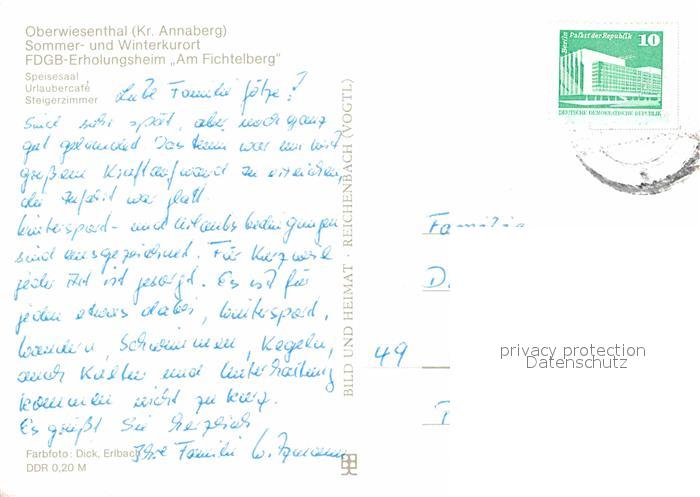 Oberwiesenthal (Kr. Annaberg)
Sommer- und Winterkurort
FDGB-Erholungsheim „Am Fichtelberg"
Speisesaal
Urlaubercafé
Steigerzimmer
Liebe Familie
Sind sehr spät, aber noch ganz
gut gelandet. Das Heim war nur mit
großem Kraftaufwand zu erreichen,
die Zufahrt war glatt.
Wintersport- und Urlaubsbedingungen
sind ausgezeichnet. Für Kurzweil
jeder Art ist gesorgt. Es ist für
jeden etwas dabei, Wintersport,
Wandern, Schwimmen, Kegeln,
auch Kultur und Unterhaltung
kommen nicht zu kurz.
Es grüßt Sie herzlich
Ihre Familie
Farbfoto: Dick, Erlbach
DDR 0,20 M
BILD UND HEIMAT · REICHENBACH (VOGTL)
Berlin Palast der Republik 10
DEUTSCHE DEMOKRATISCHE REPUBLIK
Familie
D.
49
privacy protection
Datenschutz